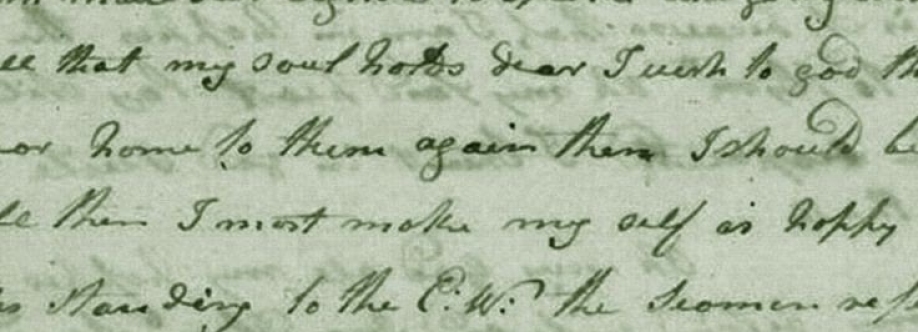 ll that my soul holds dear I wish to god th
or home to them again then I should be
ll then I most make my self as happy
is standing to the E: W: the seamen ref